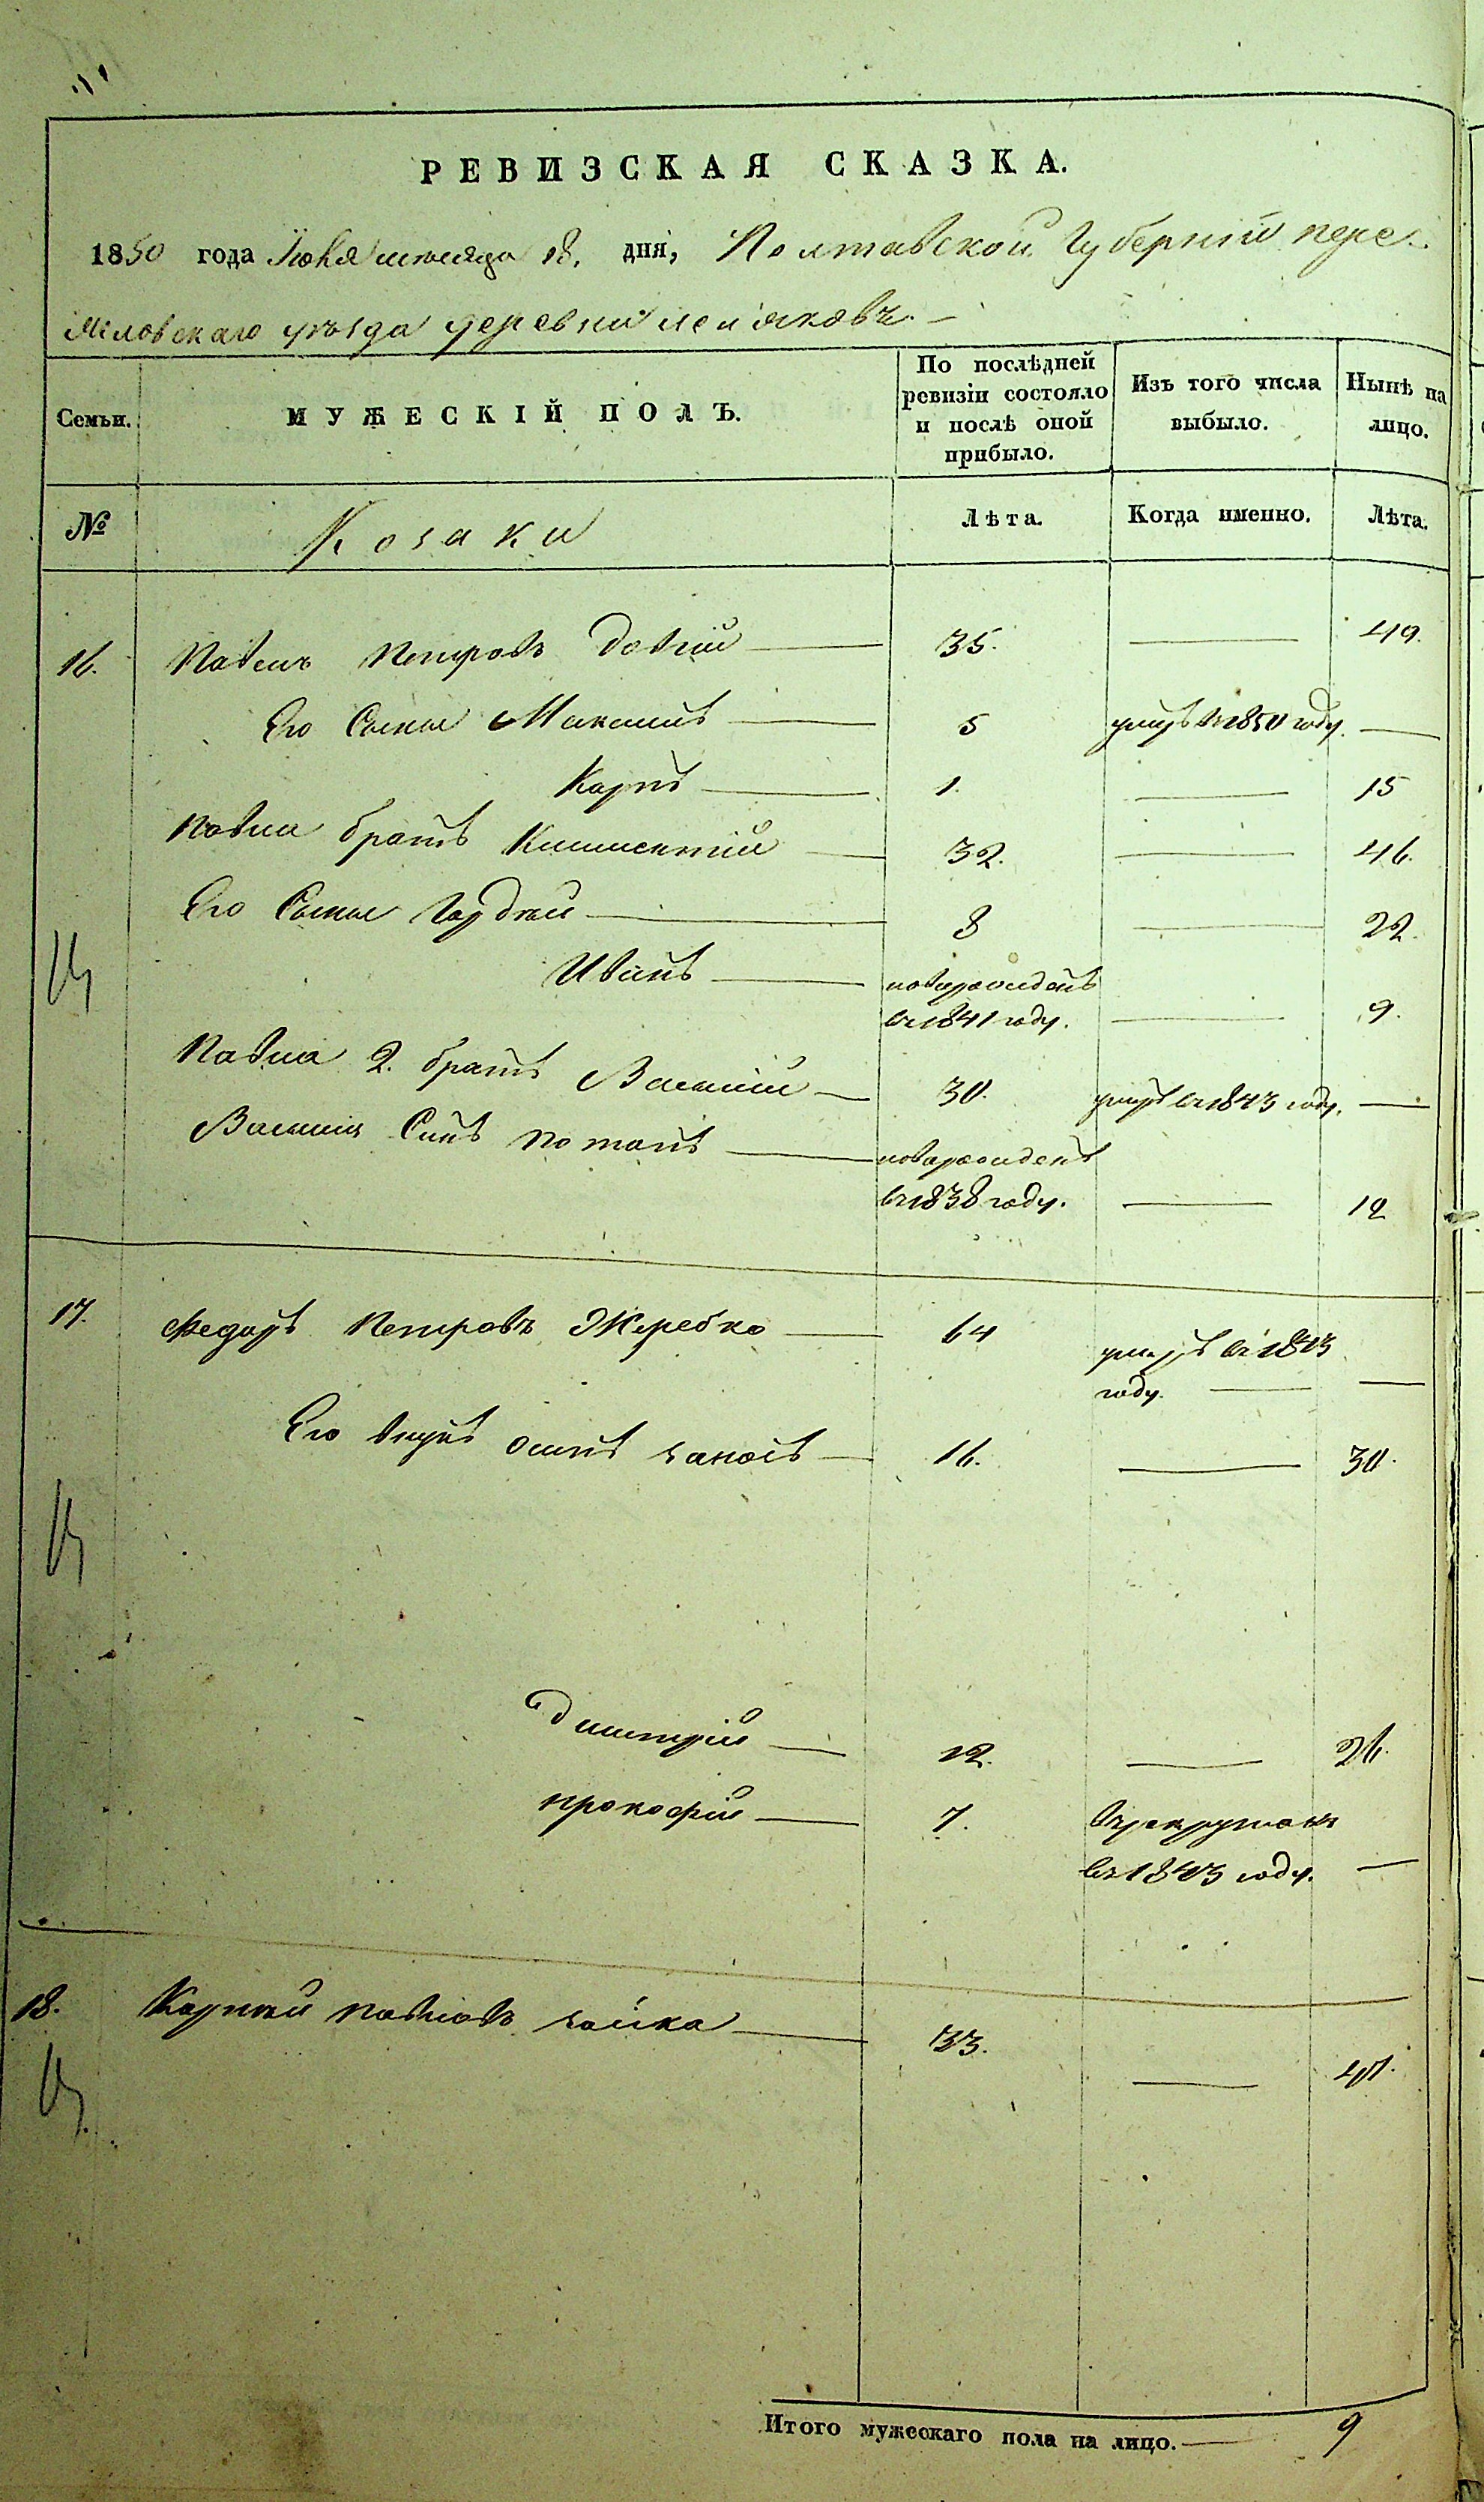 РЕВИЗСКАЯ СКАЗКА.
1850 года Іюня месяца 18, дня, Полтавской Губерніи пере-
яславскаго уѣзда деревни
Семьи.
МУЖЕСКІЙ ПОЛЪ.
По послѣдней
ревизіи состояло
и послѣ оной
прибыло.
Изъ того числа
выбыло.
Нынѣ на
лицо.
№
Козаки
Лѣта.
Когда именно.
Лѣта.
16. Павелъ Петровъ 35. 49.
Его Сыны Максимъ 5 умеръ въ 1850 году.
Карпъ 1. 15
Павла братъ 32. 46.
Его Сыны Гордей 8 22.
Иванъ новорожденъ
въ 1841 году. 9.
Павла 2. братъ Василій 30. умеръ въ 1843 году.
Василия Сынъ Потапъ новорожденъ
въ 1838 году. 12
17. Федоръ Петровъ Жеребко 64 умеръ въ 1843
году.
Его внукъ Осипъ 16. 30.
Дмитрій 12. 26.
Прокофій 7. въ рекрутахъ
въ 1843 году.
18. Карпъ Павловъ 33. 47.
Итого мужескаго пола на лицо. 9